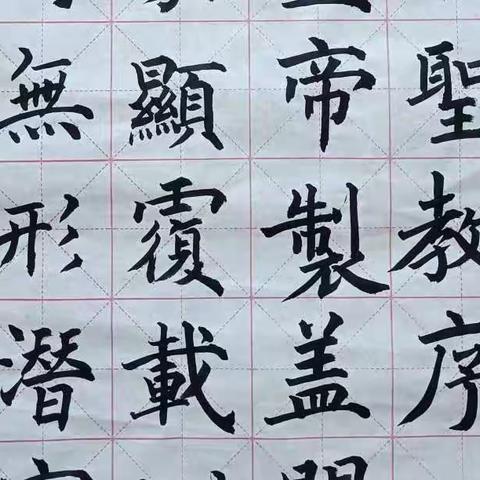 聖教序
帝製盖
顯覆載
無形潛